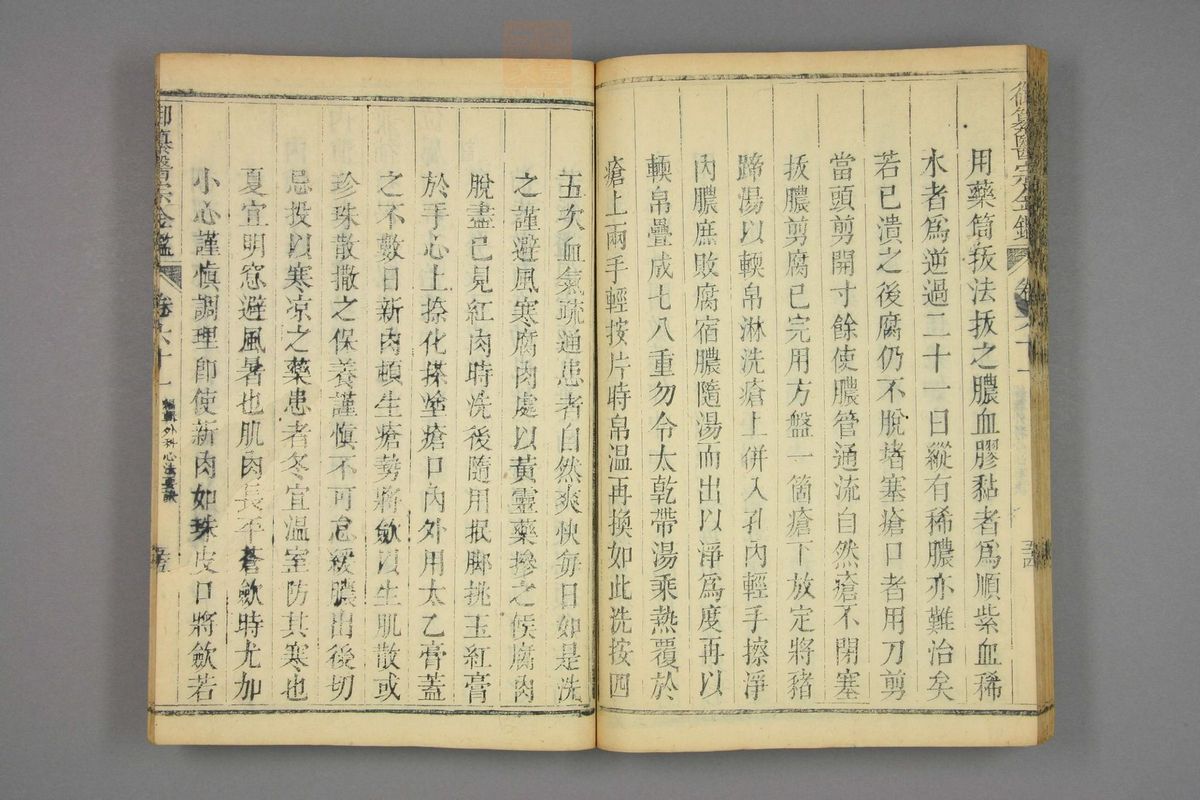 用藥筒拔法拔之膿血膠黏者爲順紫血稀
水者爲逆過二十一日縱有稀膿亦難治矣
若已潰之後腐仍不脫堵塞瘡口者用刀剪
當頭剪開寸餘使膿管通流自然瘡不閉塞
拔膿剪腐已完用方盤一箇瘡下放定將豬
蹄湯以輭帛淋洗瘡上併入孔內輕手擦淨
內膿庶敗腐宿膿隨湯而出以淨爲度再以
輭帛疊成七八重勿令太乾帶湯乘熱覆於
瘡上兩手輕按片時帛溫再換如此洗按四
五次血氣疏通患者自然爽快每日如是洗
之謹避風寒腐肉處以黃靈藥摻之候腐肉
脫盡已見紅肉時洗後隨用抿脚挑玉紅膏
於手心上捺化搽塗瘡口內外用太乙膏蓋
之不數日新肉頓生瘡勢將斂以生肌散或
珍珠散撒之保養謹慎不可怠緩膿出後切
忌投以寒凉之藥患者冬宜溫室防其寒也
夏宜明窓避風暑也肌肉長平蒼斂時尤加
小心謹慎調理即使新肉如珠皮口將斂若
御纂醫宗金鑑 卷六十一 編輯外科心法要訣